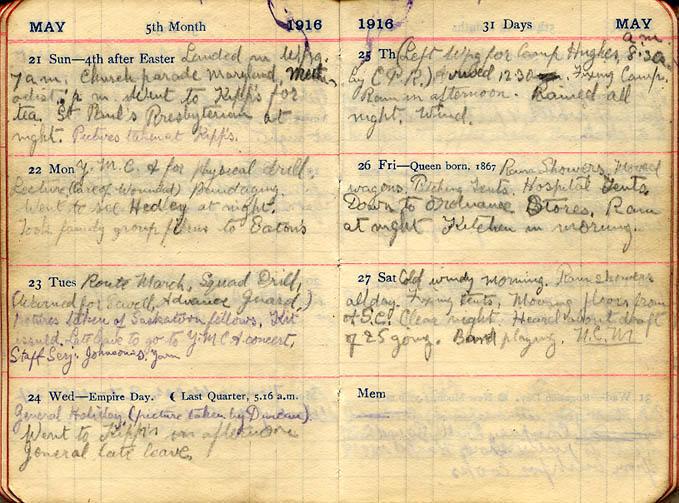 MAY 5th Month 1916
21 Sun—4th after Easter Landed in Wpg.
7 a.m. Church parade Maryland, Meth-
odist. p.m. Went to Kipp's for
tea. St Paul's Presbyterian at
night. Pictures taken at Kipp's.
22 Mon Y.M.C.A for physical drill.
Lecture (Care of Wounded) Bandaging.
Went to see Hedley at night.
Took family group to Eaton's
23 Tues Route March, Squad Drill,
for Advance Guard,)
pictures taken of Saskatoon fellows. Kit
issued. Late leave to go to Y.M.C.A concert.
Staff Serj. Johnson's Yarn
24 Wed—Empire Day. ☾ Last Quarter, 5.16 a.m.
General Holiday (picture taken by Duncan).
Went to Kipp's in afternoon
General late leave.
1916 31 Days MAY
a.m.
25 Th (Left Wpg for Camp Hughes 8:30
by C.P.R.) Arrived 12.30. Fixing Camp.
Rain in afternoon. Rained all
night. Wind.
26 Fri—Queen born, 1867 Rain Showers. Moved
wagons. Pitching Tents. Hospital Tents.
Down to Ordnance Stores. Rain
at night Kitchen in morning.
27 Sat Cold windy morning. Rain showers
all day. Fixing tents, Moving floors from
A.S.C. Clear night. Heard about draft
of 25 going. Band playing.
Mem